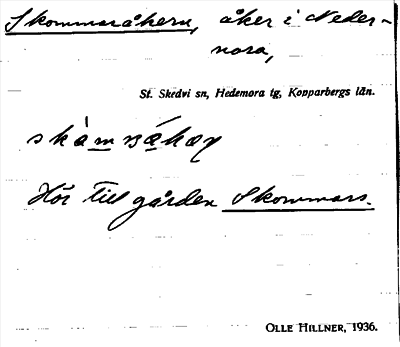 Skommarsåkern, åker i Neder-
nora,
St. Skedvi sn, Hedemora tg, Kopparbergs län.
Hör till gården Skommars.
OLLE HILLNER, 1936.